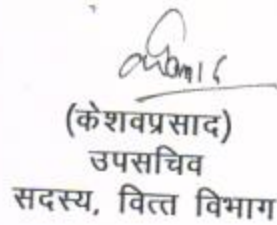 (केशवप्रसाद)
उपसचिव
सदस्य, वित्त विभाग